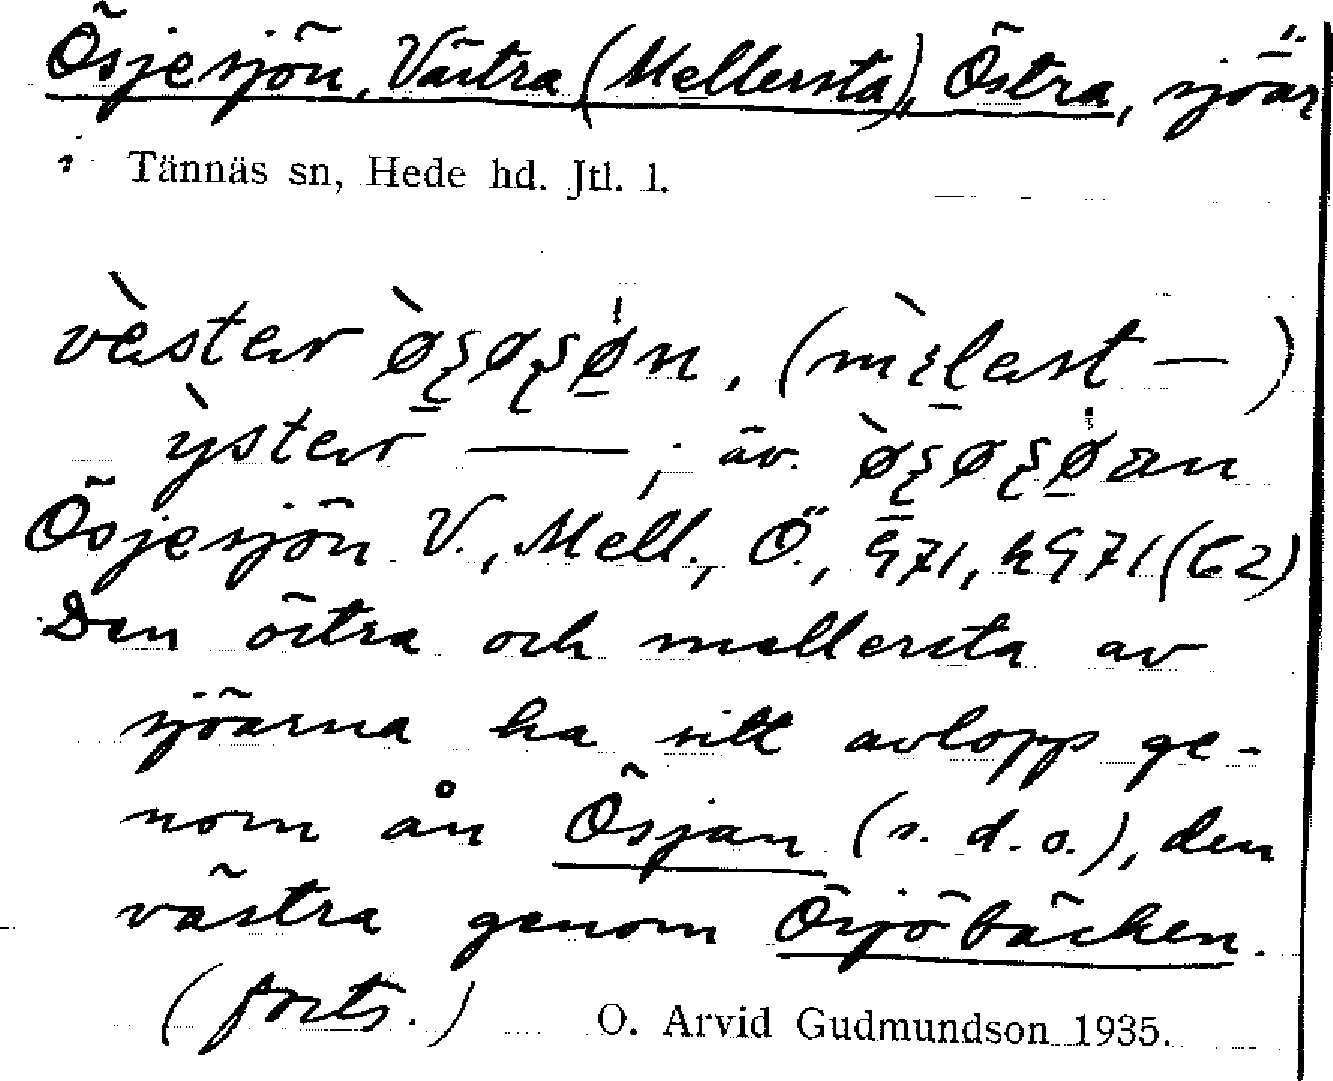 Ösjesjön, Västra (Mellersta), Östra, sjöar
i Tännäs sn, Hede hd. Jtl. l.
Ösjesjön V., Mell., Ö., G71, hG71 (C2)
Den östra och mellersta av
sjöarna ha sitt avlopp ge-
nom ån Ösjan (s. d. o.), den
västra genom Ösjöbäcken.
(forts.) O. Arvid Gudmundson 1935.